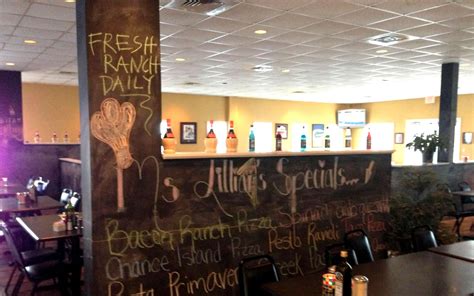 FRESH
RANCH
DAILY
Ms Lillian's Specials...
Bacon Ranch Pizza Spinach
Chance Island Pizza Pesto Ranch
Pasta Primavera Greek